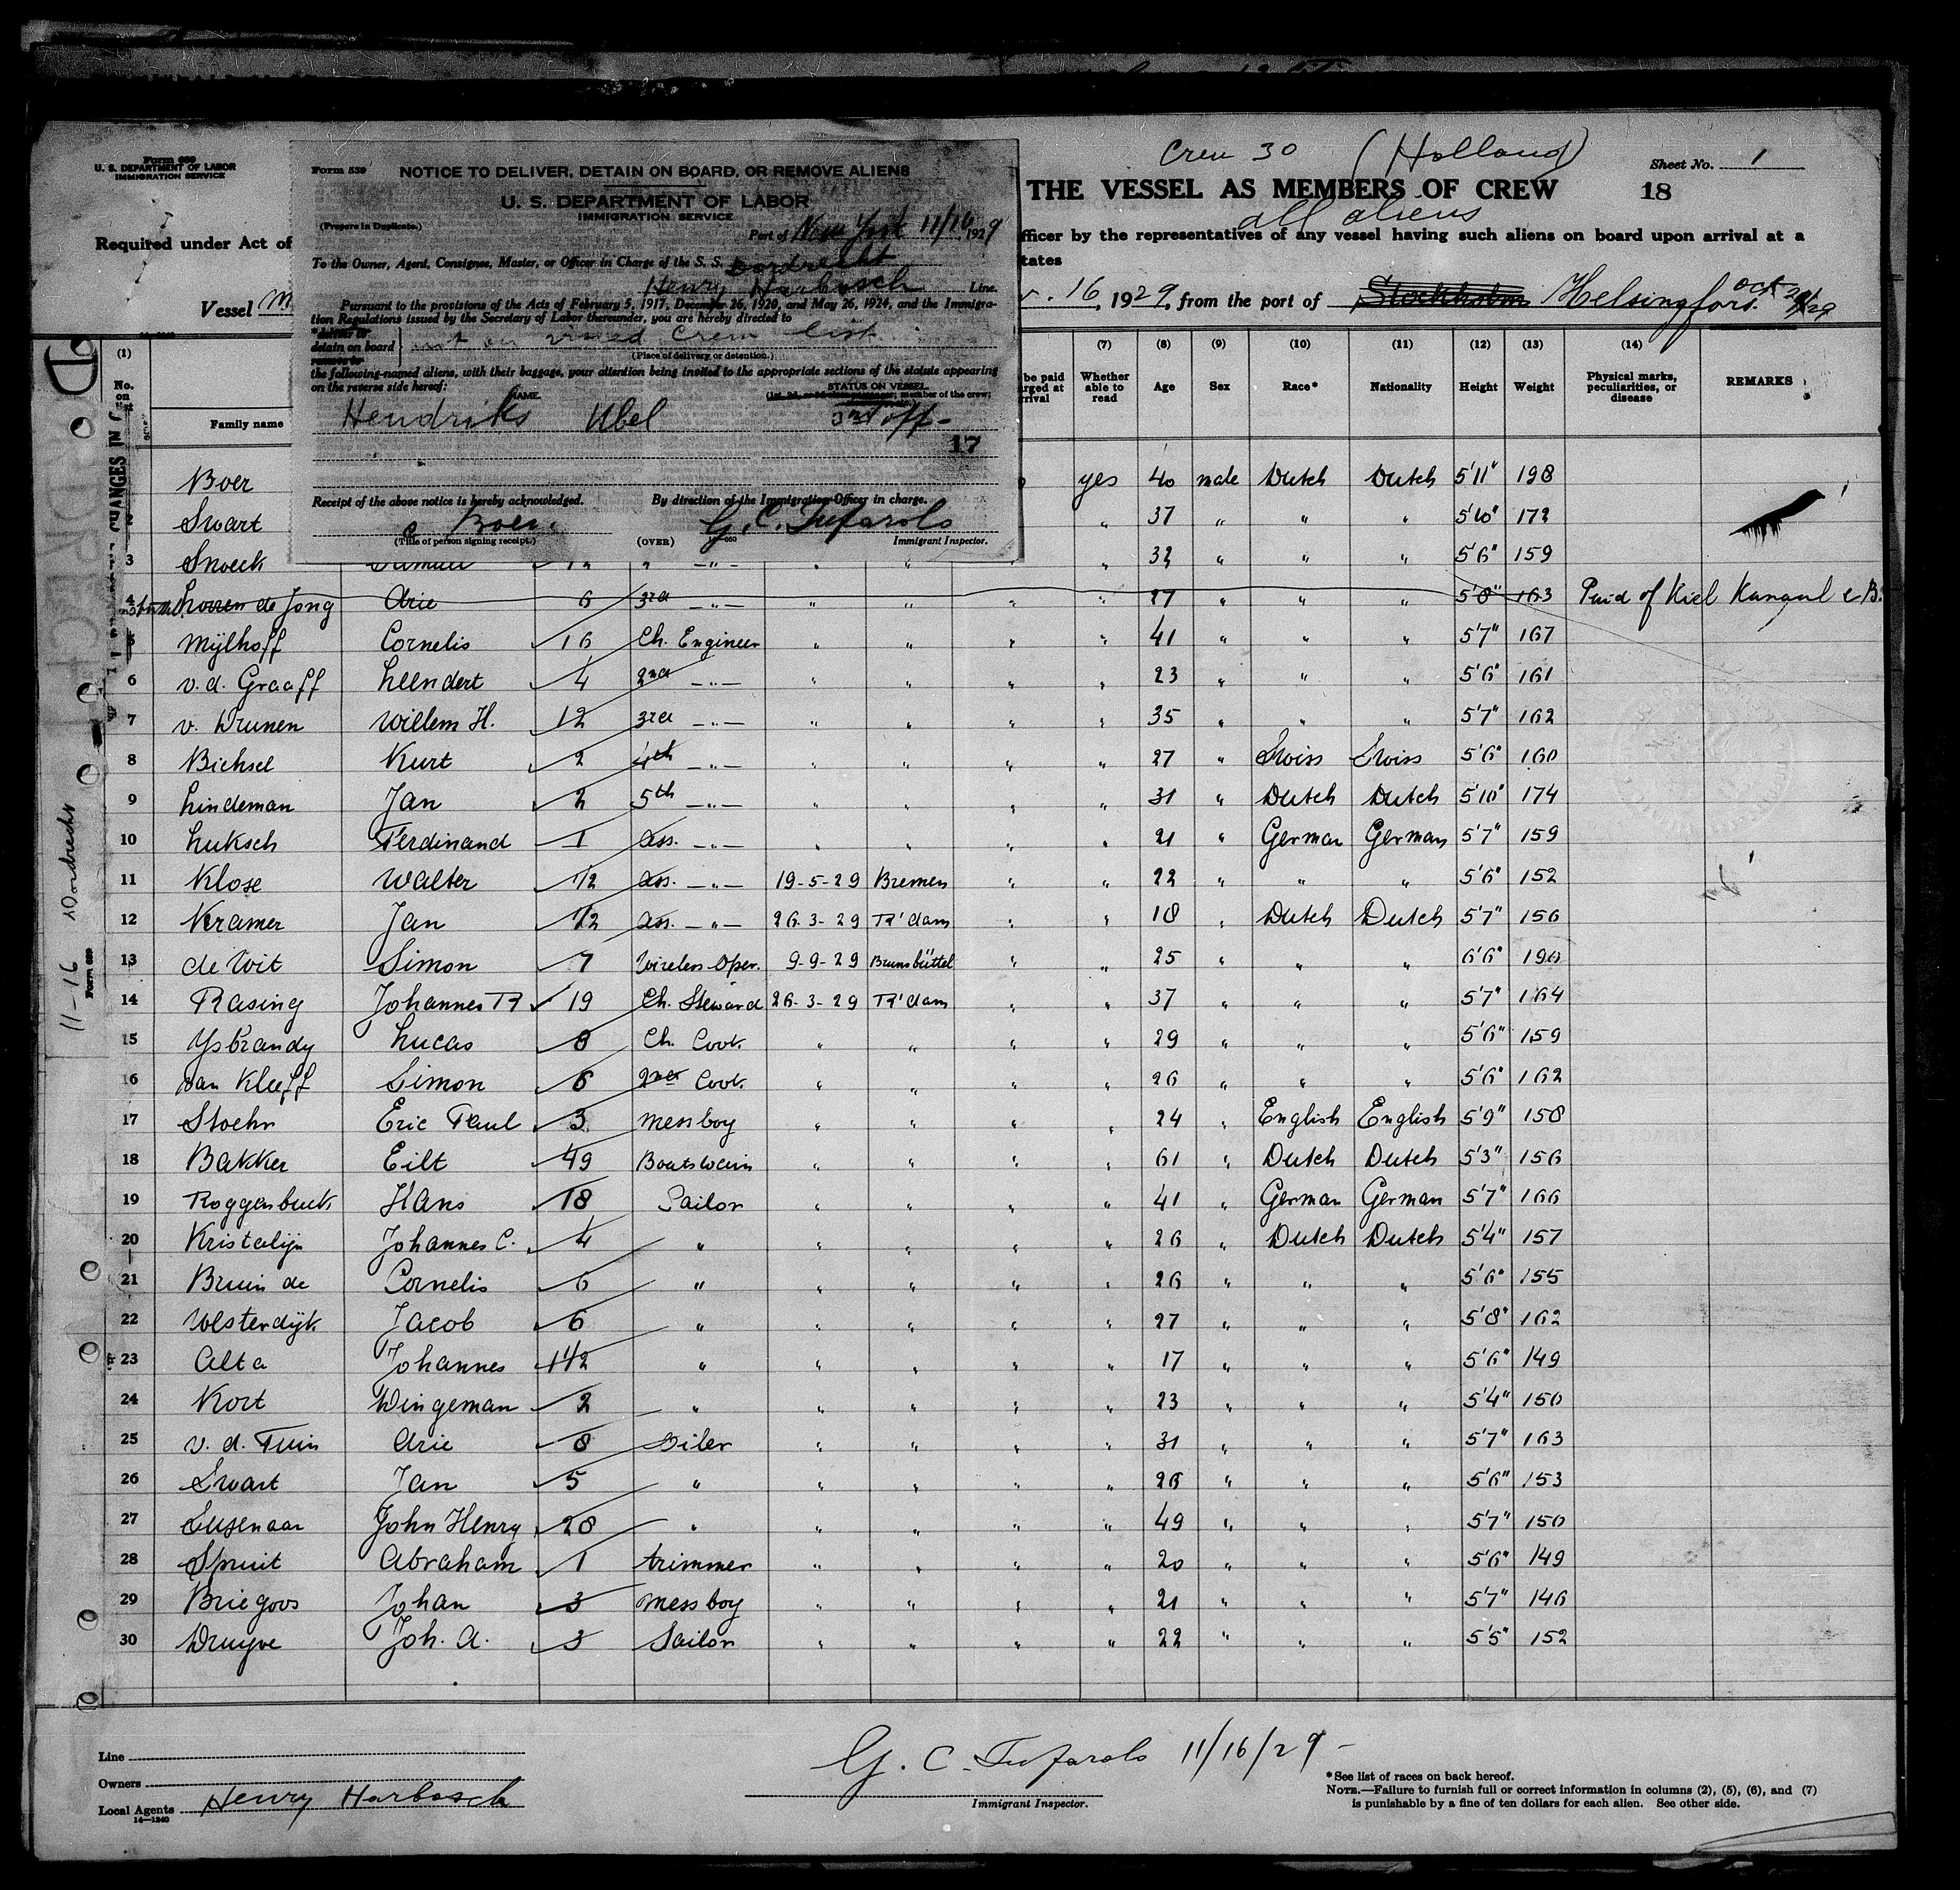 Crew 30 (Holland)
Sheet No. 1
Form 689
U. S. DEPARTMENT OF LABOR
IMMIGRATION SERVICE
THE VESSEL AS MEMBERS OF CREW 18
all aliens
Required under Act of
fficer by the representatives of any vessel having such aliens on board upon arrival at a
tates
Vessel M
v. 16, 1929, from the port of Stockholm Helsingfors. oct 29/29
Form 539 NOTICE TO DELIVER, DETAIN ON BOARD, OR REMOVE ALIENS
U. S. DEPARTMENT OF LABOR
IMMIGRATION SERVICE
(Prepare in Duplicate.)
Port of New York 11/16, 1929
To the Owner, Agent, Consignee, Master, or Officer in Charge of the S. S. Dordrecht
Henry Harbosch Line.
Pursuant to the provisions of the Acts of February 5, 1917, December 26, 1920, and May 26, 1924, and the Immigra-
tion Regulations issued by the Secretary of Labor thereunder, you are hereby directed to
*deliver to
detain on board } not on visaed crew list
remove to
(Place of delivery or detention.)
the following-named aliens, with their baggage, your attention being invited to the appropriate sections of the statute appearing
on the reverse side hereof:
NAME. STATUS ON VESSEL.
member of the crew;
Hendriks Ubel 3rd off-
17
Receipt of the above notice is hereby acknowledged. By direction of the Immigration Officer in charge.
C Boer. G. C. Tufarolo
(Title of person signing receipt.) (OVER) Immigrant Inspector.
(1) (7) (8) (9) (10) (11) (12) (13) (14)
No. on list Family name be paid rged at rival Whether able to read Age Sex Race* Nationality Height Weight Physical marks, peculiarities, or disease REMARKS
CHANGES IN
Boer yes 40 male Dutch Dutch 5'11" 198
2 Swart " 37 " " " 5'10" 172
3 Snoeck Samuel 12 " -"- " " " 32 " " " 5'6" 159
4 Loozen de Jong Arie 6 3rd -"- " " " " 27 " " " 5'8" 163 Paid of Kiel Kanaal C B.
5 Mylhoff Cornelis 16 Ch. Engineer " " " " 41 " " " 5'7" 167
6 v.d. Graaff Leendert 4 2nd -"- " " " " 23 " " " 5'6" 161
7 v. Drunen Willem H. 12 3rd -"- " " " " 35 " " " 5'7" 162
8 Bichsel Kurt 2 4th -"- " " " " 27 " Swiss Swiss 5'6" 160
9 Lindeman Jan 2 5th -"- " " " " 31 " Dutch Dutch 5'10" 174
10 Luksch Ferdinand 1 Ass. -"- " " " " 21 " German German 5'7" 159
11 Klose Walter 1/2 Ass. -"- 19-5-29 Bremen " " 22 " " " 5'6" 152
12 Kramer Jan 1/2 Ass. -"- 26-3-29 R'dam " " 18 " Dutch Dutch 5'7" 156
13 de Wit Simon 7 Wireless-Oper. 9-9-29 Brunsbüttel " " 25 " " " 6'6" 190
14 Rasing Johannes R 19 Ch. Steward 26-3-29 R'dam " " 37 " " " 5'7" 164
15 Ysbrandy Lucas 8 Ch. Cook " " " " 29 " " " 5'6" 159
16 van Kleeff Simon 6 2nd Cook " " " " 26 " " " 5'6" 162
17 Stoehr Eric Paul 3 messboy " " " " 24 " English English 5'9" 158
18 Bakker Eilt 49 Boatswain " " " " 61 " Dutch Dutch 5'3" 156
19 Roggenbuck Hans 18 Sailor " " " " 41 " German German 5'7" 166
20 Kristalijn Johannes C. 4 " " " " " 26 " Dutch Dutch 5'4" 157
21 Bruin de Cornelis 6 " " " " " 26 " " " 5'6" 155
22 Westerdijk Jacob 6 " " " " " 27 " " " 5'8" 162
23 Alta Johannes 1 1/2 " " " " " 17 " " " 5'6" 149
24 Kort Dingeman 2 " " " " " 23 " " " 5'4" 150
25 v. d. Tuin Arie 8 Oiler " " " " 31 " " " 5'7" 163
26 Swart Jan 5 " " " " " 26 " " " 5'6" 153
27 Eusenaar John Henry 28 " " " " " 49 " " " 5'7" 150
28 Spruit Abraham 1 trimmer " " " " 20 " " " 5'6" 149
29 Briegoos Johan 3 messboy " " " " 21 " " " 5'7" 146
30 Druyve Joh. A. 3 Sailor " " " " 22 " " " 5'5" 152
11-16 Dordrecht
Form 689
Line
Owners
Local Agents Henry Harbosch
14—1240
G. C. Tufarolo 11/16/29-
Immigrant Inspector.
*See list of races on back hereof.
NOTE.—Failure to furnish full or correct information in columns (2), (5), (6), and (7)
is punishable by a fine of ten dollars for each alien. See other side.